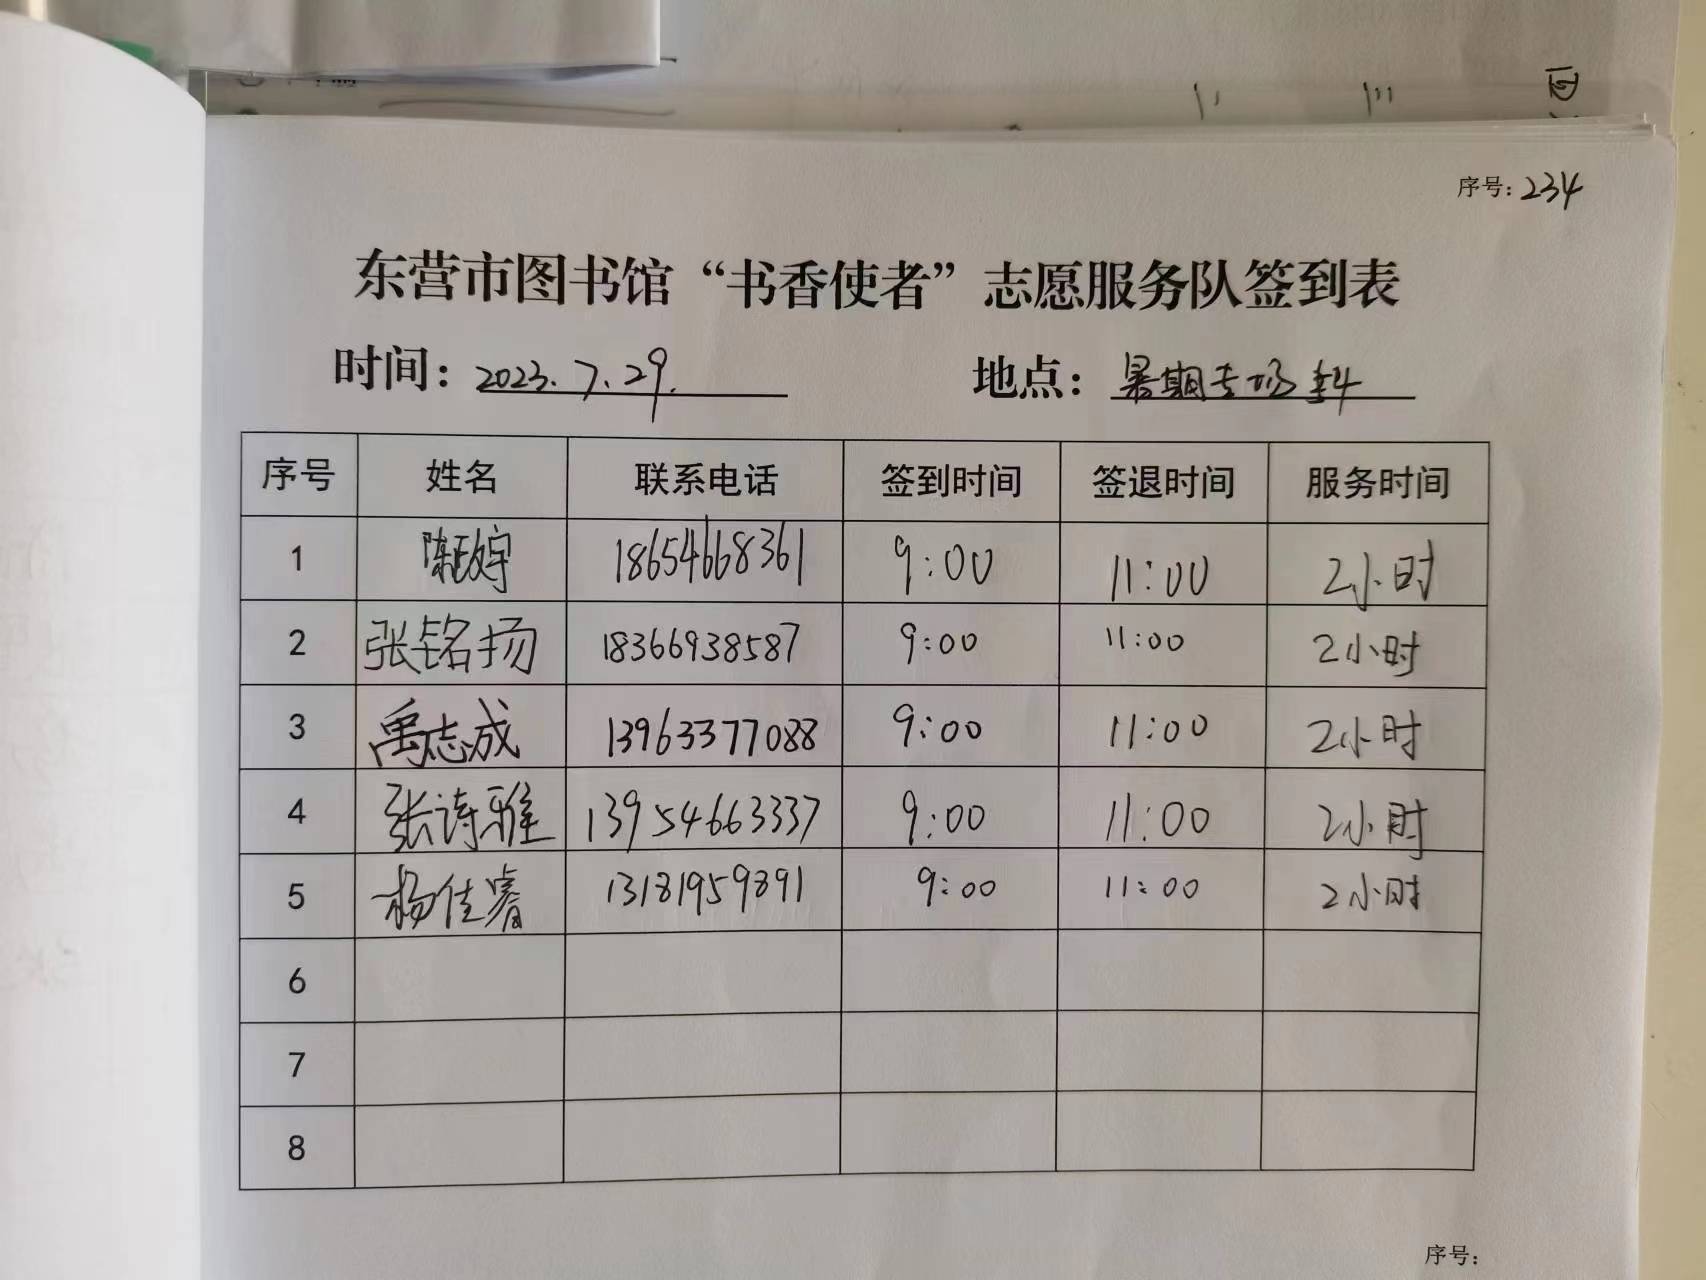 序号：234
东营市图书馆“书香使者”志愿服务队签到表
时间：2023.7.29. 地点：暑期专场
序号 姓名 联系电话 签到时间 签退时间 服务时间
1 陈 18654668361 9:00 11:00 2小时
2 张铭扬 18366938587 9:00 11:00 2小时
3 禹志成 13963377088 9:00 11:00 2小时
4 张诗雅 13954663337 9:00 11:00 2小时
5 杨佳睿 13181959891 9:00 11:00 2小时
6
7
8
序号：